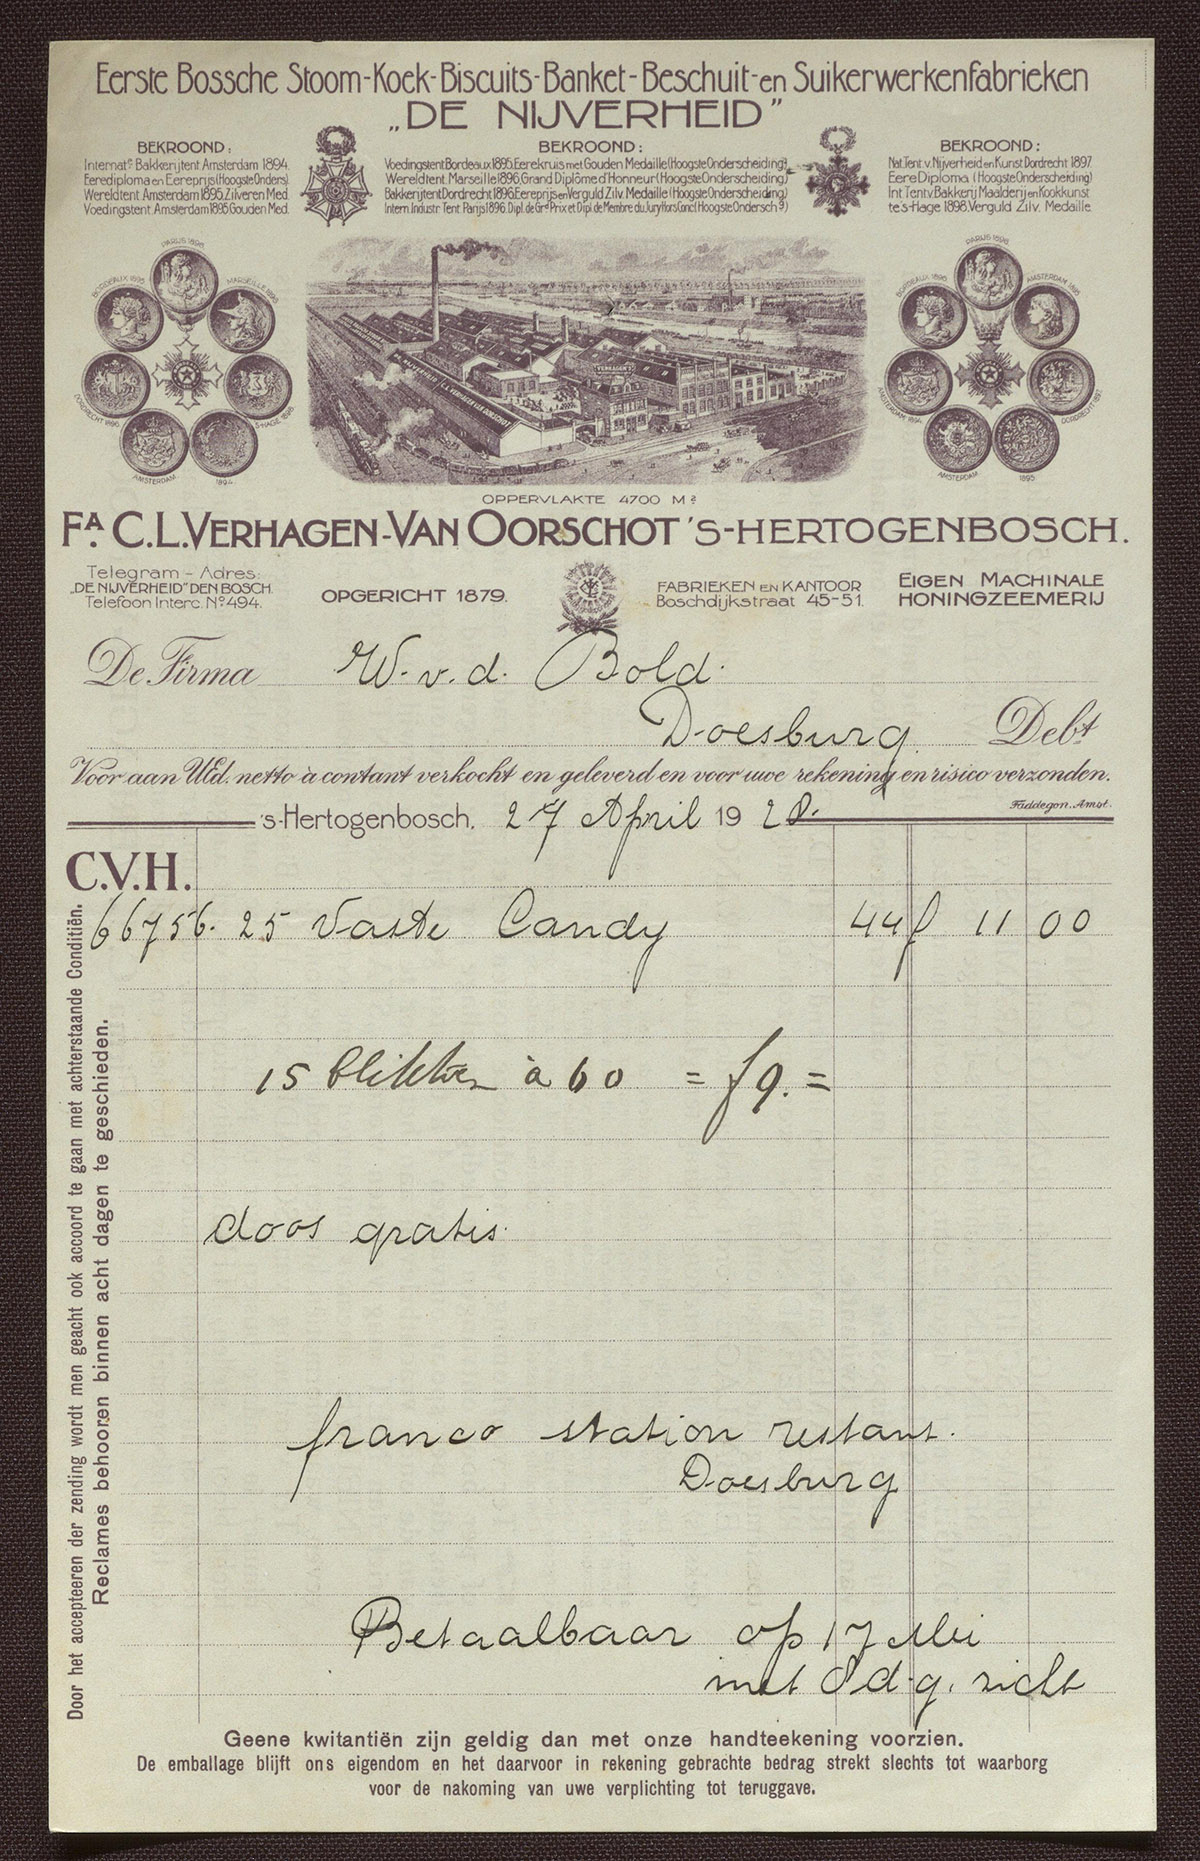 Eerste Bossche Stoom-Koek-Biscuits-Banket-Beschuit-en Suikerwerkenfabrieken
„DE NIJVERHEID”
BEKROOND:
Internatle Bakkerijtent Amsterdam 1894.
Eerediploma en Eereprijs (Hoogste Onders).
Wereldtent Amsterdam 1895. Zilveren Med.
Voedingstent Amsterdam 1895 Gouden Med.
BEKROOND:
Voedingstent Bordeaux 1895. Eerekruis met Gouden Medaille (Hoogste Onderscheiding).
Wereldtent. Marseille 1896. Grand Diplôme d'Honneur (Hoogste Onderscheiding)
Bakkerijtent Dordrecht 1896. Eereprijs en Verguld Zilv. Medaille (Hoogste Onderscheiding)
Intern. Industr. Tent. Parijs 1896. Dipl. de Grd Prix et Dipl. de Membre du Jury Hors Conc. (Hoogste Ondersch.g)
BEKROOND:
Nat. Tent v. Nijverheid en Kunst Dordrecht 1897.
Eere Diploma (Hoogste Onderscheiding)
Int Tent v. Bakkerij Maalderij en Kookkunst
te 's-Hage 1898. Verguld Zilv. Medaille
PARIJS 1896.
BORDEAUX 1895
MARSEILLE 1896
DORDRECHT 1896
'S-HAGE 1898
AMSTERDAM 1894.
VERHAGEN'S
DE NIJVERHEID
C.L. VERHAGEN VAN OORSCHOT
PARIJS 1896.
BORDEAUX 1895
AMSTERDAM 1895
AMSTERDAM 1894
DORDRECHT 1897
AMSTERDAM 1895
OPPERVLAKTE 4700 M²
FA. C.L. VERHAGEN-VAN OORSCHOT 'S-HERTOGENBOSCH.
Telegram - Adres:
„DE NIJVERHEID” DEN BOSCH.
Telefoon Interc. No 494.
OPGERICHT 1879.
FABRIEKEN EN KANTOOR
Boschdijkstraat 45-51.
EIGEN MACHINALE
HONINGZEEMERIJ
De Firma W. v. d. Bold.
Doesburg. Debt.
Voor aan UEd. netto à contant verkocht en geleverd en voor uwe rekening en risico verzonden.
Faddegon. Amst.
's-Hertogenbosch, 27 April 1928.
C.V.H.
66756. 25 Vaste Candy 44 f 11 00
15 blikken à 60 = f 9. =
doos gratis.
franco station restant.
Doesburg
Betaalbaar op 17 Mei
met 8 d. g. zicht
Door het accepteeren der zending wordt men geacht ook accoord te gaan met achterstaande Conditiën.
Reclames behooren binnen acht dagen te geschieden.
Geene kwitantiën zijn geldig dan met onze handteekening voorzien.
De emballage blijft ons eigendom en het daarvoor in rekening gebrachte bedrag strekt slechts tot waarborg
voor de nakoming van uwe verplichting tot teruggave.